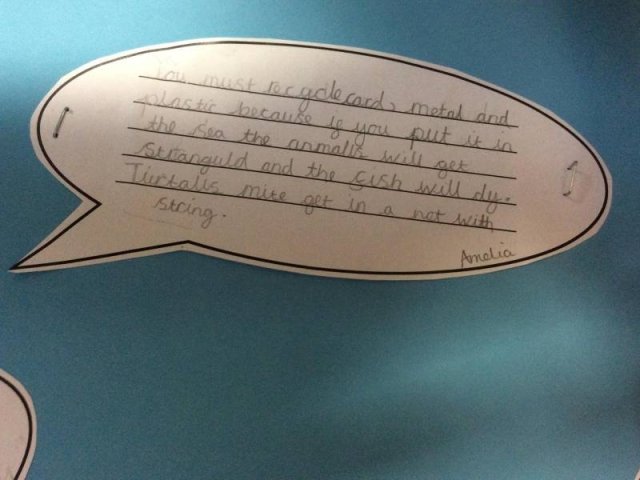 You must recycle card, metal and
plastic because if you put it in
the sea the anmalls will get
stranguld and the fish will dy.
Turtalls mite get in a not with
string.
Amelia